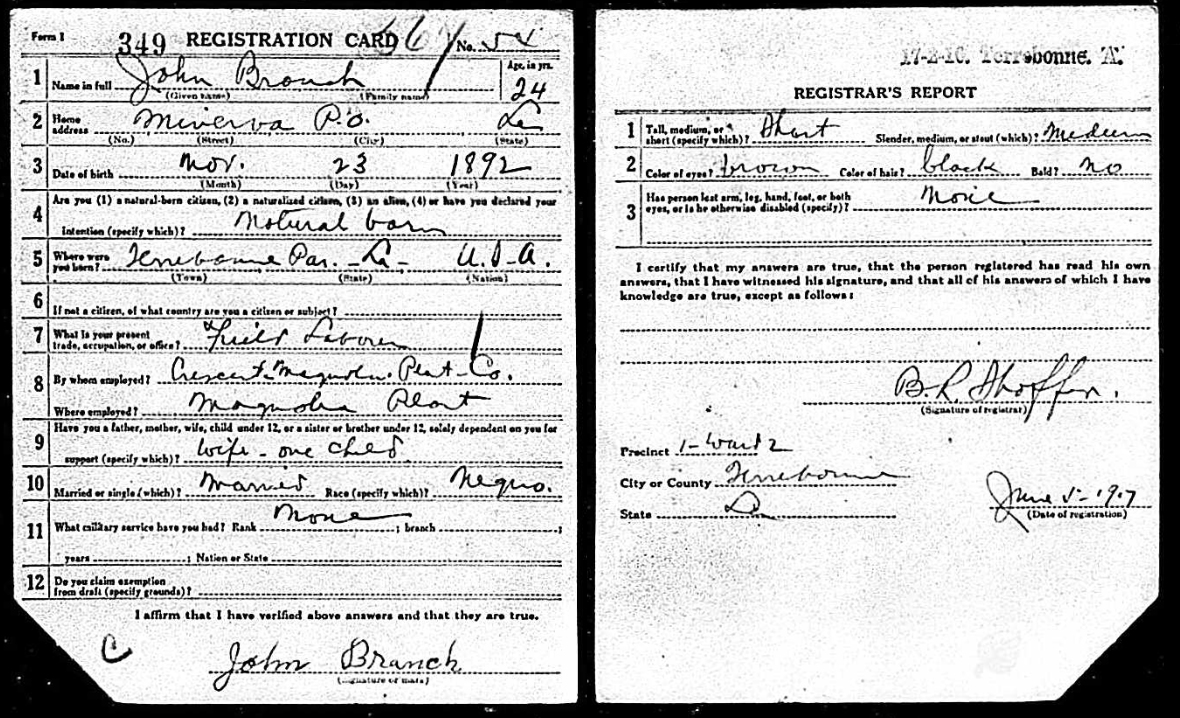 Form 1 349 REGISTRATION CARD No. 54
1 Name in full John Branch Age, in yrs. 24
(Given name) (Family name)
2 Home address Minerva P.O. La
(No.) (Street) (City) (State)
3 Date of birth Nov. 23 1892
(Month) (Day) (Year)
4 Are you (1) a natural-born citizen, (2) a naturalized citizen, (3) an alien, (4) or have you declared your
intention (specify which)? Natural born
5 Where were you born? Terrebonne Par. - La - U.S.A.
(Town) (State) (Nation)
6 If not a citizen, of what country are you a citizen or subject?
7 What is your present trade, occupation, or office? Field Laborer
8 By whom employed? Crescent & Magnolia Plant Co.
Where employed? Magnolia Plant
9 Have you a father, mother, wife, child under 12, or a sister or brother under 12, solely dependent on you for
support (specify which)? Wife - one child
10 Married or single (which)? Married Race (specify which)? Negro.
11 What military service have you had? Rank None ; branch ;
years ; Nation or State
12 Do you claim exemption
from draft (specify grounds)?
I affirm that I have verified above answers and that they are true.
C John Branch
(Signature or mark)
17-2-10. Terrebonne. A.
REGISTRAR'S REPORT
1 Tall, medium, or short (specify which)? Short Slender, medium, or stout (which)? Medium
2 Color of eyes? brown Color of hair? black Bald? No
3 Has person lost arm, leg, hand, foot, or both
eyes, or is he otherwise disabled (specify)? None
I certify that my answers are true, that the person registered has read his own
answers, that I have witnessed his signature, and that all of his answers of which I have
knowledge are true, except as follows:
B. R. Shaffer.
(Signature of registrar)
Precinct 1 - Ward 2
City or County Terrebonne
State La
June 5 - 1917
(Date of registration)